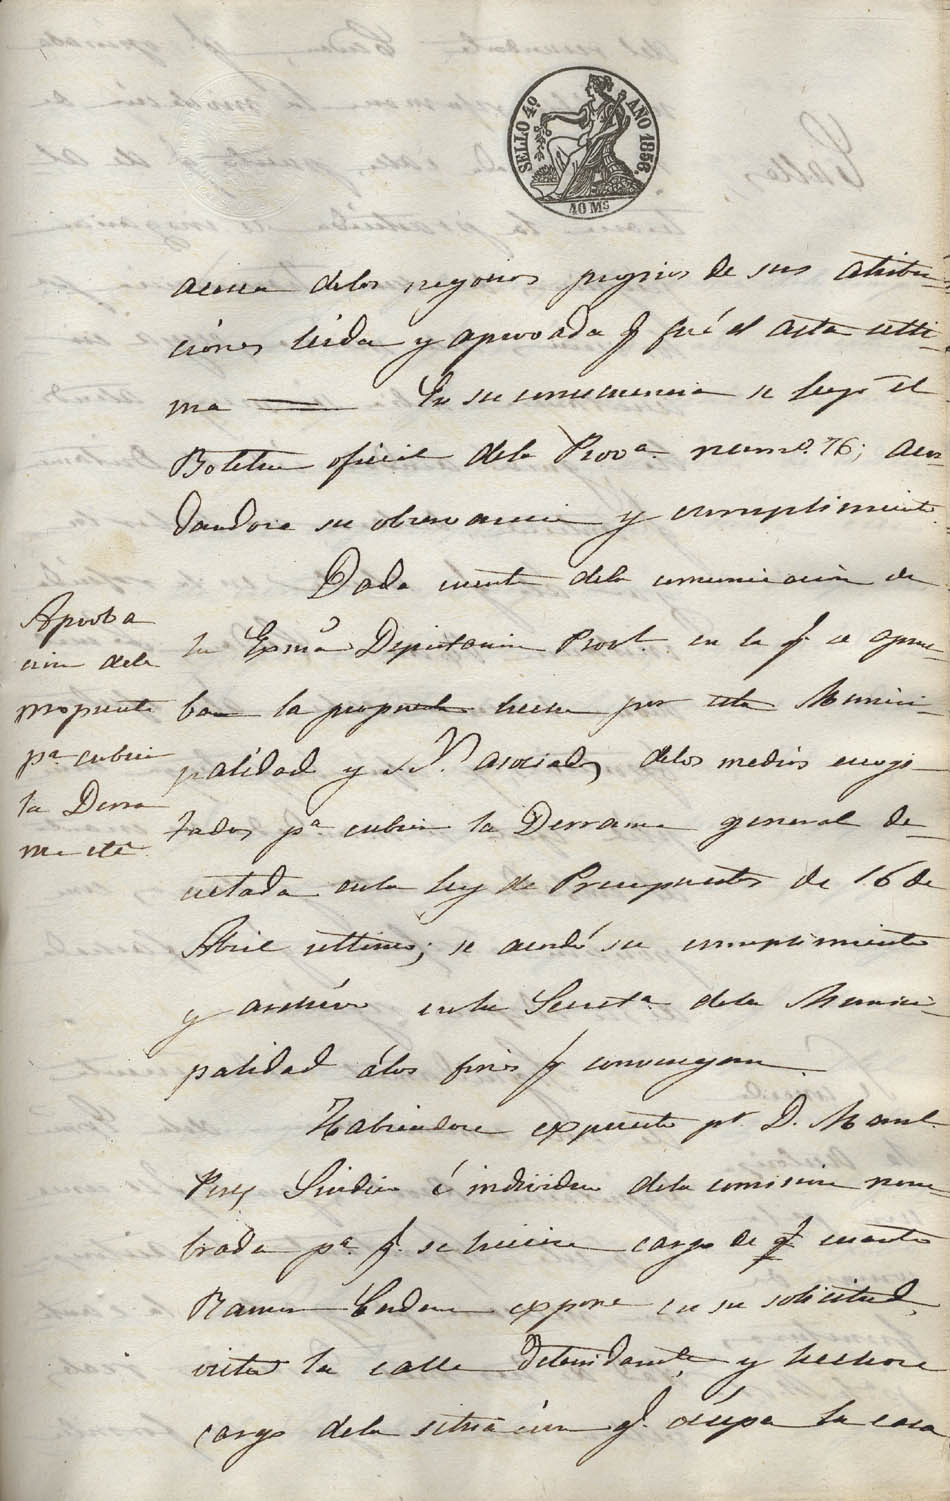 SELLO 4º AÑO 1856.
40 Ms
acerca delos negocios propios de sus atribu-
ciones leida y aprovada q. fué el acta ulti-
ma En su consecuencia se leyó el
Boletin oficial dela Prov.ª num.º 76; acor-
dandose su observancia y cumplimiento.
Dada cuenta dela comunicacion de
la Exma Diputacion Provl. en la q. se aprue-
ban la propuesta hecha por esta Munici-
palidad y S.S. asociados, delos medios escogi-
tados pª cubrir la Derrama general de-
cretada enla ley de Presupuestos de 16 de
Abril ultimo; se acordó su cumplimiento
y archivo enla Secretª dela Munici-
palidad álos fines q. convengan.
Habiendose expuesto pr. D. Manl.
Perez Sindico é individuo dela comision nom-
brada pª q. se hiciera cargo de q. cuanto
Ramon expone en su solicitud,
vista la calle detenidamte. y hechose
cargo dela situacion q. ocupa la casa
Aproba
cion dela
propuesta
pª cubrir
la Derra
ma etª.